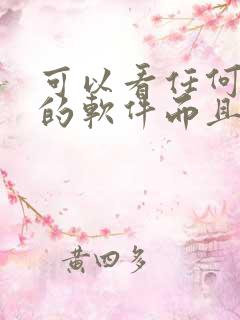 可以看任何
的軟件而且
黄四多